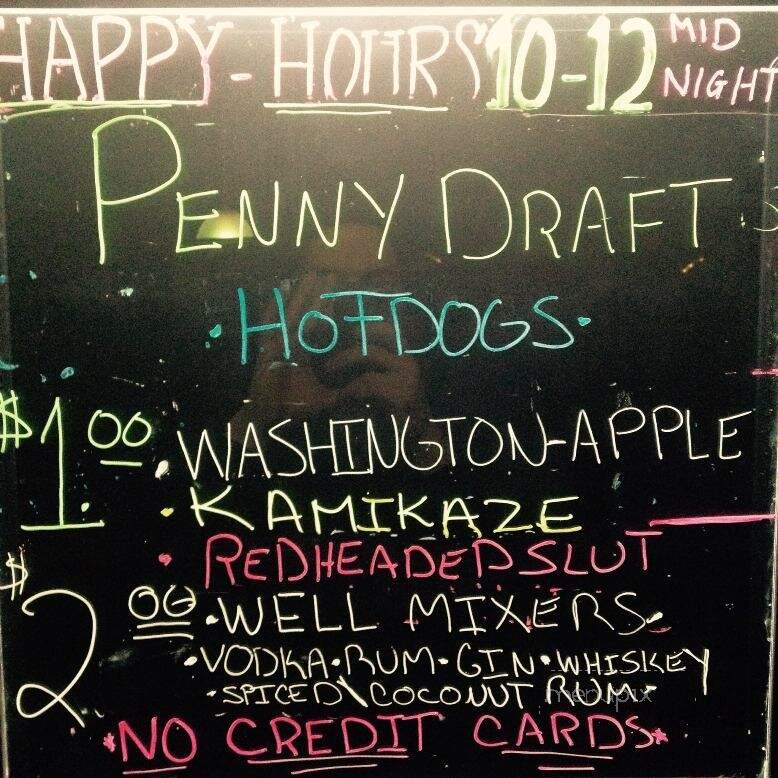 HAPPY-HOURS 10-12 MID NIGHT
PENNY DRAFT
•HOTDOGS•
$1.00 •WASHINGTON-APPLE
•KAMIKAZE
•REDHEADED SLUT
$2.00 •WELL MIXERS•
•VODKA•RUM•GIN•WHISKEY
•SPICED\COCOUNUT RUM•
*NO CREDIT CARDS*
menupix